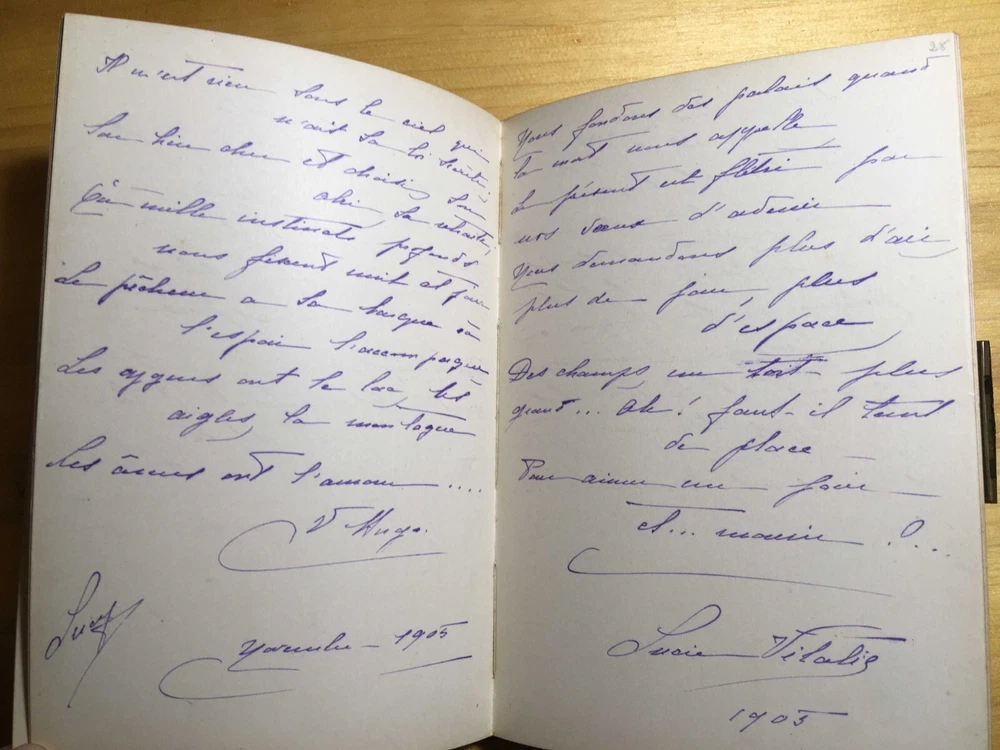 Il n'est rien sous le ciel qui
n'ait sa loi secrète,
Son lieu cher et choisi, son
abri, sa retraite,
Où mille instincts profonds
nous fixent nuit et jour
Le pêcheur a sa barque où
l'espoir l'accompagne
Les cygnes ont le lac, les
aigles, la montagne
Les âmes ont l'amour ....
V Hugo.
Lucy
Novembre - 1905
28
Nous fondons des palais quand
la mort nous appelle
Le présent est flétri par
nos vœux d'advenir
Nous demandons plus d'air,
plus de jour, plus
d'espace,
Des champs, un toit plus
grand... Ah! faut-il tant
de place
Pour aimer un jour
et... mourir?...
Lucie
1905